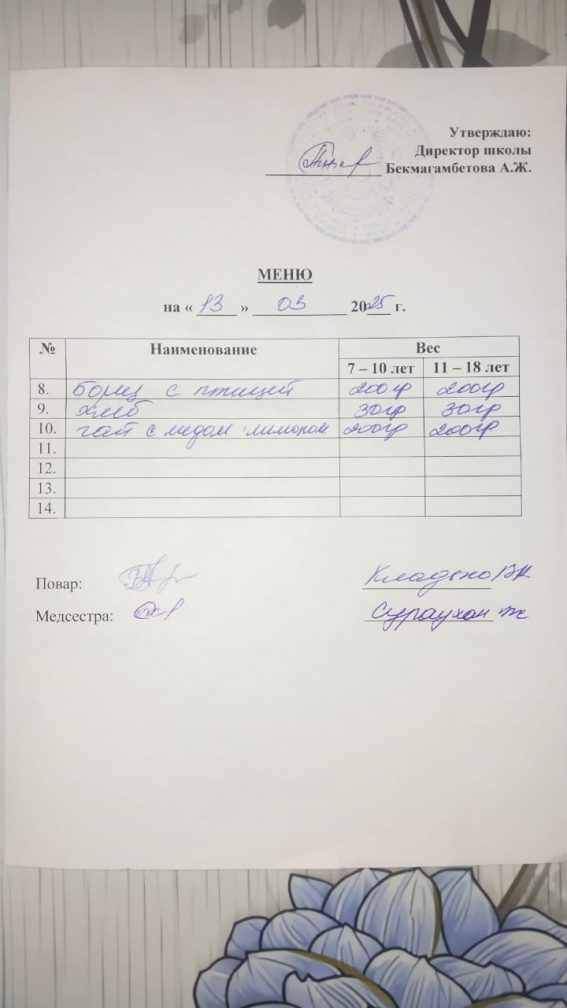 Утверждаю:
Директор школы
Бекмагамбетова А.Ж.
МЕНЮ
на « 13 » 03 2025 г.
№ Наименование Вес
7 – 10 лет 11 – 18 лет
8. борщ с птицей 200гр 200гр
9. хлеб 30гр 30гр
10. чай с медом лимоном 200гр 200гр
11.
12.
13.
14.
Повар:
Медсестра: Сураухан Ж